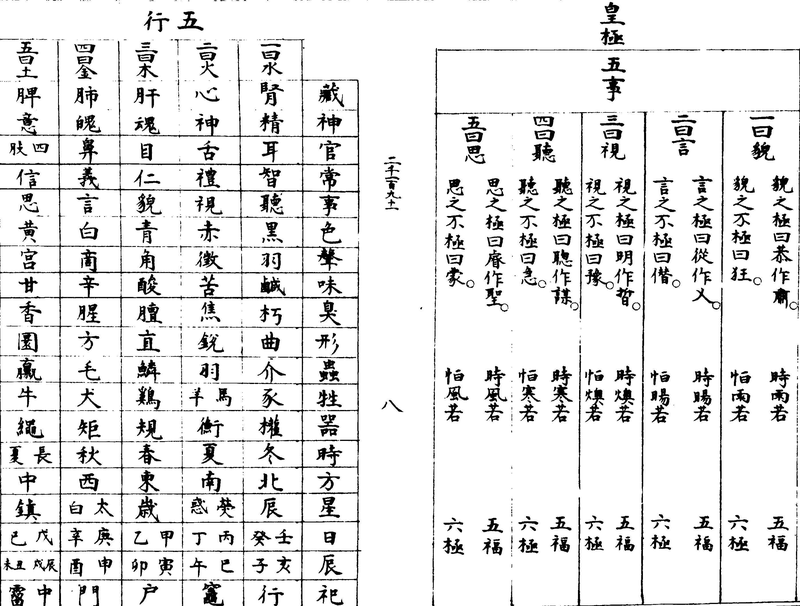 皇極
五事
一曰貌
貌之極曰恭作肅。
貌之不極曰狂。
時雨若
恒雨若
五福
六極
二曰言
言之極曰從作乂。
言之不極曰僭。
時暘若
恒暘若
五福
六極
三曰視
視之極曰明作哲。
視之不極曰豫。
時燠若
恒燠若
五福
六極
四曰聽
聽之極曰聰作謀。
聽之不極曰急。
時寒若
恒寒若
五福
六極
五曰思
思之極曰睿作聖。
思之不極曰蒙。
時風若
恒風若
五福
六極
二千一百九十一
八
五行
藏神官常事色聲味臭形蟲牲器時方星日辰祀
一曰水
腎精耳智聽黑羽鹹朽曲介豕權冬北辰壬癸亥子行
二曰火
心神舌禮視赤徵苦焦銳羽馬羊衡夏南熒惑丙丁巳午竈
三曰木
肝魂目仁貌青角酸膻直鱗鷄規春東歲甲乙寅卯户
四曰金
肺魄鼻義言白商辛腥方毛犬矩秋西太白庚辛申酉門
五曰土
脾意四肢信思黃宮甘香圜臝牛繩長夏中鎮戊己辰戌丑未中霤